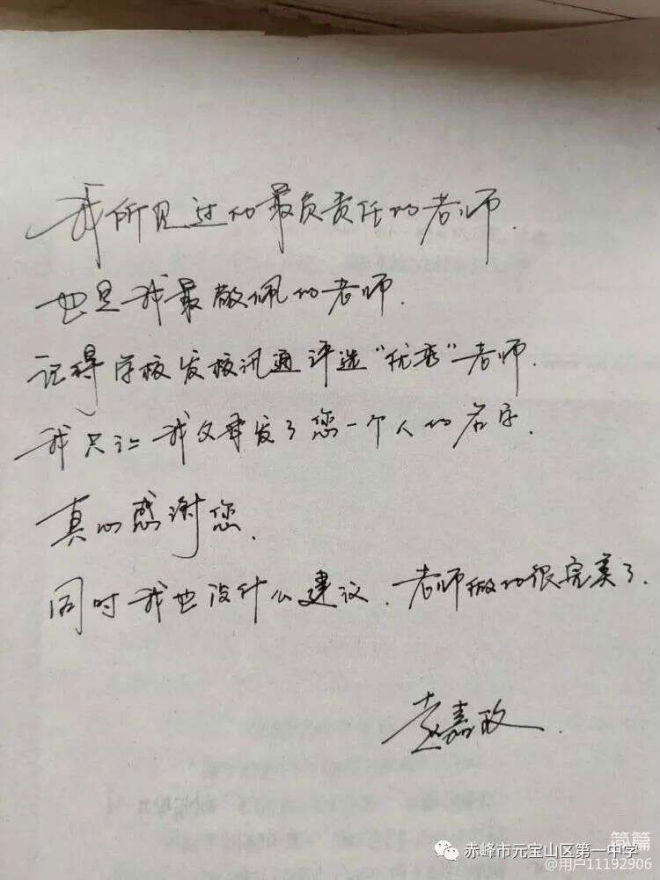 我所见过的最负责任的老师.
也是我最敬佩的老师.
记得学校发校讯通评选“优秀”老师.
我只让我父母发了您一个人的名字.
真心感谢您.
同时我也没什么建议.老师做的很完美了.
袁嘉政.
简篇
赤峰市元宝山区第一中学
@用户11192906